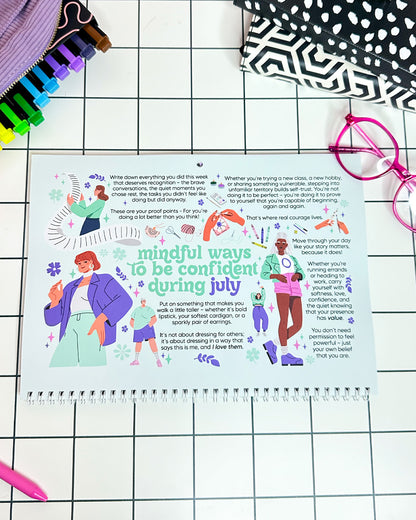 Write down everything you did this week
that deserves recognition – the brave
conversations, the quiet moments you
chose rest, the tasks you didn't feel like
doing but did anyway.
These are your proof points - For you're
doing a lot better than you think!
Whether you're trying a new class, a new hobby,
or sharing something vulnerable, stepping into
unfamiliar territory builds self-trust. You're not
doing it to be perfect – you're doing it to prove
to yourself that you're capable of beginning,
again and again.
That's where real courage lives.
mindful ways
to be confident
during july
Move through your day
like your story matters,
because it does!
Whether you're
running errands
or heading to
work, carry
yourself with
softness, love,
confidence, and
the quiet knowing
that your presence
has value.
You don't need
permission to feel
powerful – just
your own belief
that you are.
Put on something that makes you
walk a little taller – whether it's bold
lipstick, your softest cardigan, or a
sparkly pair of earrings.
It's not about dressing for others;
it's about dressing in a way that
says this is me, and I love them.